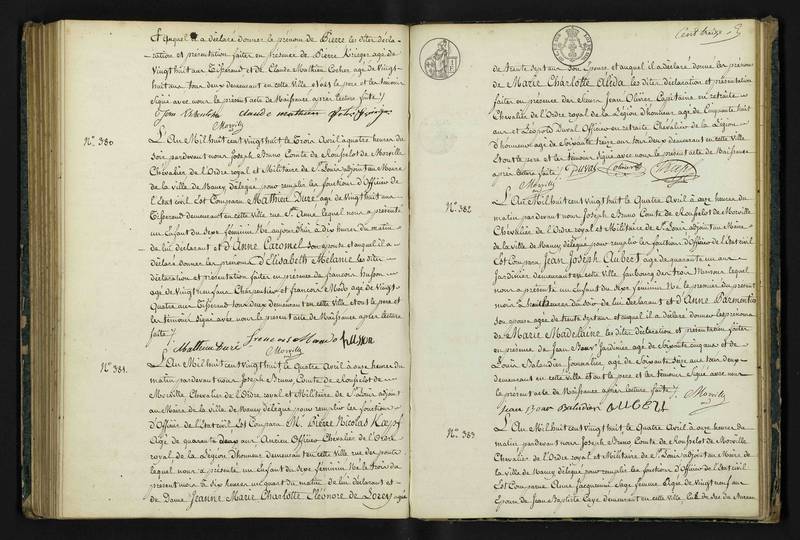 Et auquel il a déclaré donner le prénom de Pierre les dites décla-
-ration et présentation faites en présence de Pierre Krieger agé de
vingt huit ans Tisserand et de Claude Mathieu Cocher agé de vingt-
huit ans tous deux demeurant en cette ville et ont le pere et les témoins
signé avec nous le présent acte de Naissance après lecture faite /.
claude mathieu
Morville
N.º 380
L'An Mil huit cent vingt huit le Trois Avril à quatre heures du
soir pardevant nous Joseph Bruno Comte de Rousselot de Morville
Chevalier de l'Ordre royal et Militaire de St Louis adjoint au Maire
de la Ville de Nancy délégué pour remplir les fonctions d'Officier de
l'Etat civil Est Comparu Mathieu Duré agé de vingt huit ans
Tisserand demeurant en cette ville rue Ste Anne lequel nous a présenté
un Enfant du sexe féminin Né aujourd'hui à Dix heures du matin
de lui déclarant et d'Anne Caromel son épouse et auquel il a
déclaré donner les prénoms d'Elisabeth Mélanie les dites
déclaration et présentation faites en présence de francois husson
agé de vingt neuf ans Charpentier et francois Modo agé de vingt
quatre ans Tisserand tous deux demeurant en cette ville et ont le pere et
les témoins signé avec nous le présent acte de Naissance après lecture
faite /.
Mathieu Duré husson
Morville
N.º 381.
L'An Mil huit cent vingt huit le Quatre Avril à onze heures du
matin pardevant nous Joseph Bruno Comte de Rousselot de
Morville Chevalier de l'Ordre royal et Militaire de St Louis adjoint
au Maire de la Ville de Nancy délégué pour remplir les fonctions
d'Officier de l'Etat civil Est Comparu Mr Pierre Nicolas
Agé de quarante deux ans Ancien Officier Chevalier de l'Ordre
royal de la Légion d'honneur demeurant en cette ville rue des ponts
lequel nous a présenté un Enfant du sexe féminin Né le trois du
présent mois à dix heures un quart du matin de lui déclarant et
de Dame Jeanne Marie Charlotte Eléonore de agée
Cent treize
de trente sept ans son Epouse et auquel il a déclaré donner les prénoms
de Marie Charlotte Alida les dites déclaration et présentation
faites en présence des sieurs Jean Olivier Capitaine en retraite
Chevalier de l'Ordre royal de la Légion d'honneur agé de Cinquante huit
ans et Léopold Duval Officier en retraite Chevalier de la Légion
d'honneur agé de Soixante treize ans tous deux demeurant en cette ville
et ont le pere et les témoins signé avec nous le présent acte de Naissance
après lecture faite /.
Morville
N.º 382
L'An Mil huit cent vingt huit le Quatre Avril à onze heures du
matin pardevant nous Joseph Bruno Comte de Rousselot de Morville
Chevalier de l'Ordre royal et Militaire de St Louis adjoint au Maire
de la Ville de Nancy délégué pour remplir les fonctions d'Officier de l'Etat civil
Est Comparu Jean Joseph Aubert agé de quarante un ans
Jardinier demeurant en cette ville faubourg des trois Maisons lequel
nous a présenté un Enfant du sexe féminin Né le premier du présent
mois à huit heures du soir de lui déclarant et d'Anne Parmentier
son épouse agée de trente sept ans et auquel il a déclaré donner les prénoms
de Marie Madelaine les dites déclaration et présentation faites
en présence de Jean Jardinier agé de Soixante cinq ans et de
Louis Balardier Journalier agé de Soixante seize ans tous deux
demeurant en cette ville et ont le pere et les témoins signé avec nous
le présent acte de Naissance après lecture faite /. Morville
Jean Balardier AUBERT
N.º 383
L'An Mil huit cent vingt huit le Quatre Avril à onze heures du
matin pardevant nous Joseph Bruno Comte de Rousselot de Morville
Chevalier de l'Ordre royal et Militaire de St Louis adjoint au Maire de
la Ville de Nancy délégué pour remplir les fonctions d'Officier de l'Etat civil
Est Comparue Anne Jacquemin Sage femme Agée de vingt neuf ans
Epouse de Jean Baptiste demeurant en cette ville,